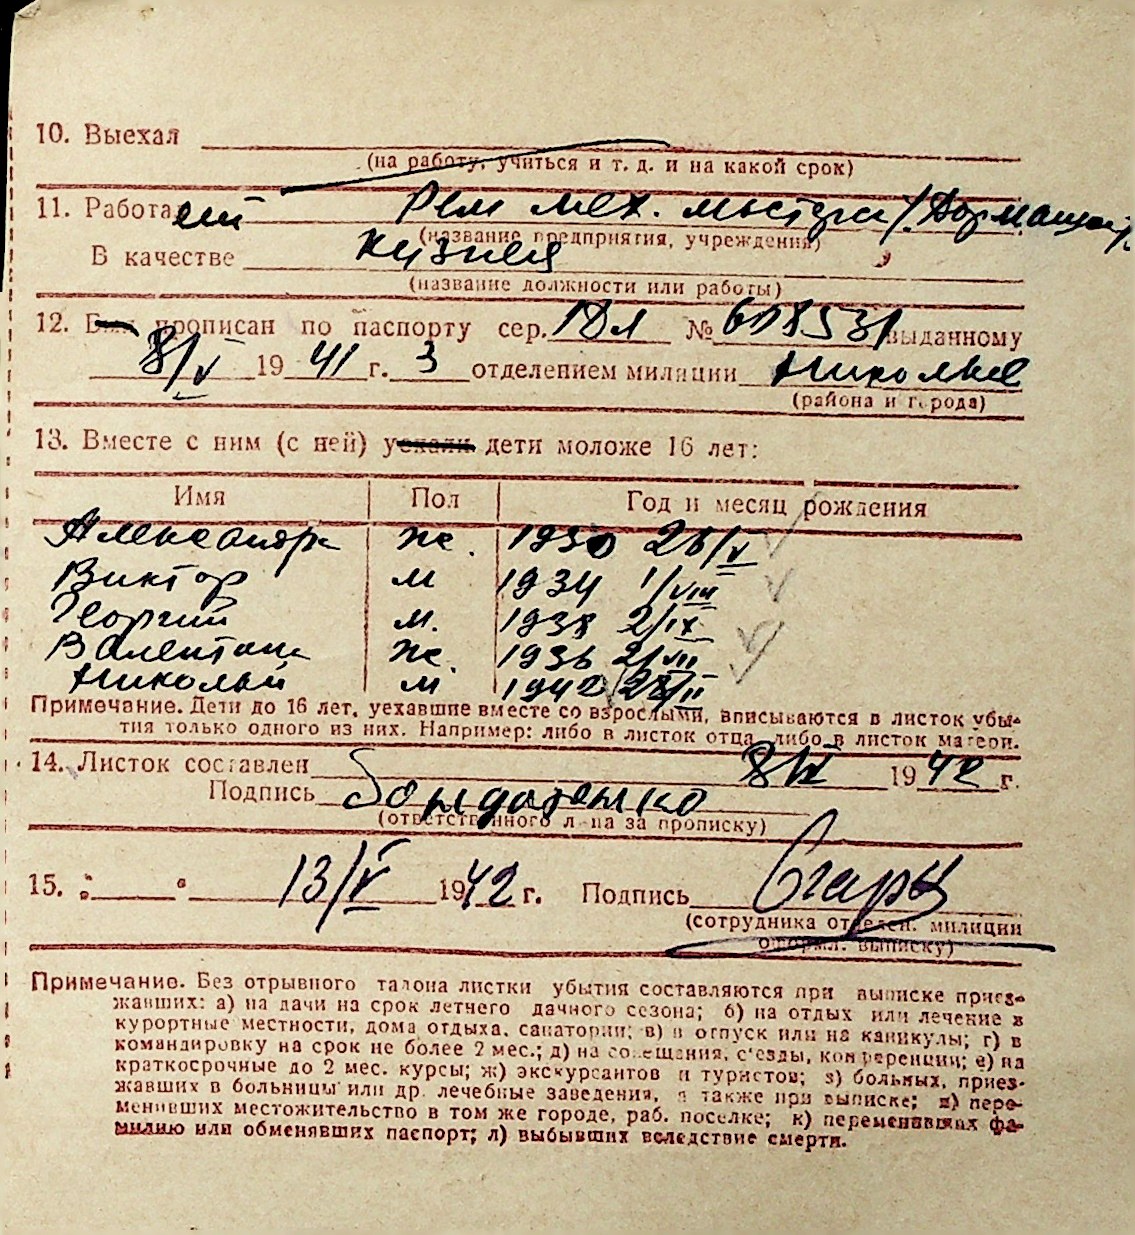 10. Выехал
(на работу, учиться и т. д. и на какой срок)
11. Работает Рем мех. мастерск
(название предприятия, учреждения)
В качестве кузнец
(название должности или работы)
12. Был прописан по паспорту сер. № 608531 выданному
8/V 1941 г. 3 отделением милиции Николаев
(района и города)
13. Вместе с ним (с ней) уехали дети моложе 16 лет:
Имя Пол Год и месяц рождения
Александра ж. 1930 26/V
Виктор м 1934 1/VIII
Георгий м. 1938 2/IX
Валентина ж. 1936 2/VII
Николай м 1942 28/II
Примечание. Дети до 16 лет, уехавшие вместе со взрослыми, вписываются в листок убы-
тия только одного из них. Например: либо в листок отца, либо в листок матери.
14. Листок составлен 1942 г.
Подпись Бондаренко
(ответственного л-ца за прописку)
15. " " 13/V 1942 г. Подпись
(сотрудника отделен. милиции
оформл. выписку)
Примечание. Без отрывного талона листки убытия составляются при выписке приез-
жавших: а) на дачи на срок летнего дачного сезона; б) на отдых или лечение в
курортные местности, дома отдыха, санатории; в) в отпуск или на каникулы; г) в
командировку на срок не более 2 мес.; д) на совещания, с'езды, конференции; е) на
краткосрочные до 2 мес. курсы; ж) экскурсантов и туристов; з) больных, приез-
жавших в больницы или др. лечебные заведения, а также при выписке; и) пере-
менивших местожительство в том же городе, раб. поселке; к) переменивших фа-
милию или обменявших паспорт; л) выбывших вследствие смерти.